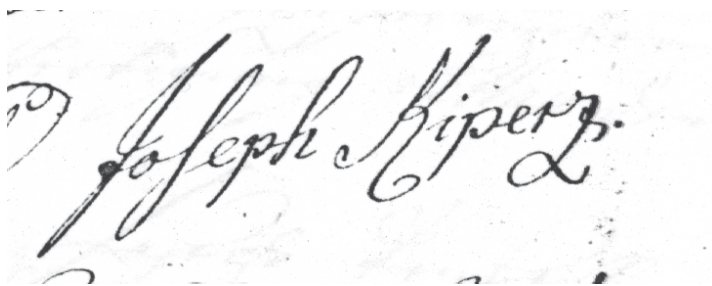 Joseph Kiperz.